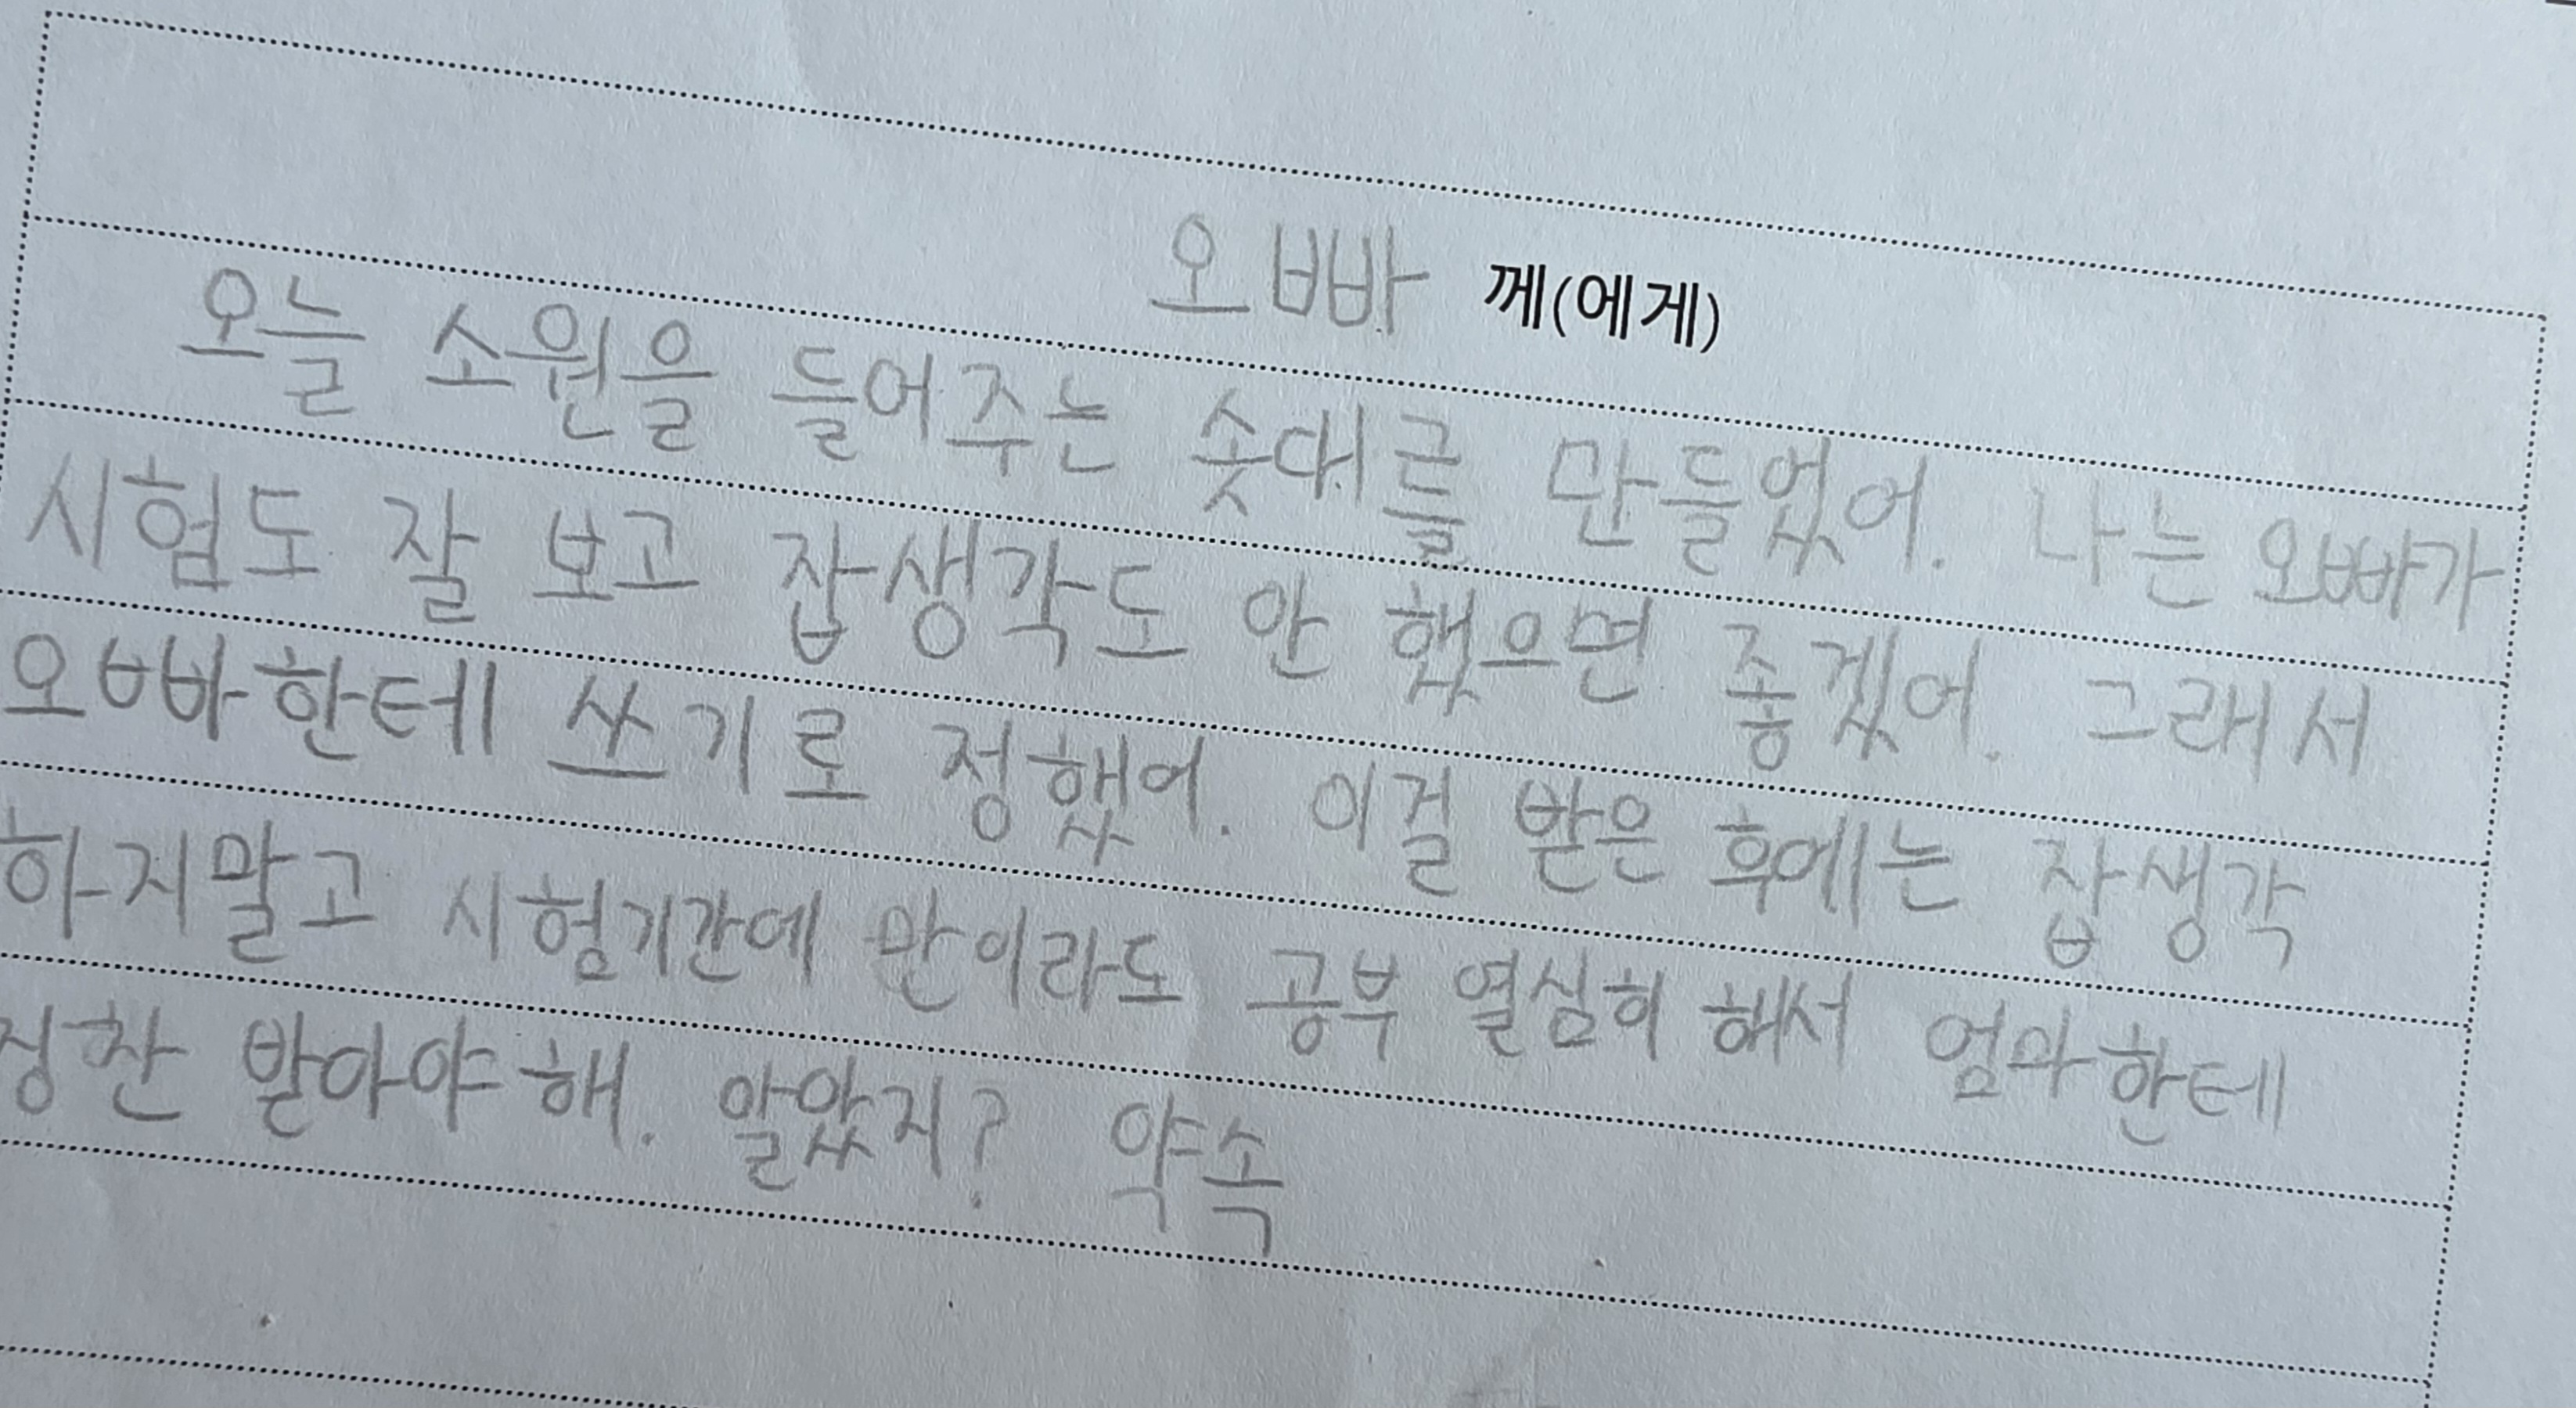 오빠 께(에게)
오늘 소원을 들어주는 솟대를 만들었어. 나는 오빠가
시험도 잘 보고 잡생각도 안 했으면 좋겠어. 그래서
오빠한테 쓰기로 정했어. 이걸 받은 후에는 잡생각
하지말고 시험기간에 만이라도 공부 열심히 해서 엄마한테
칭찬 받아야 해. 알았지? 약속